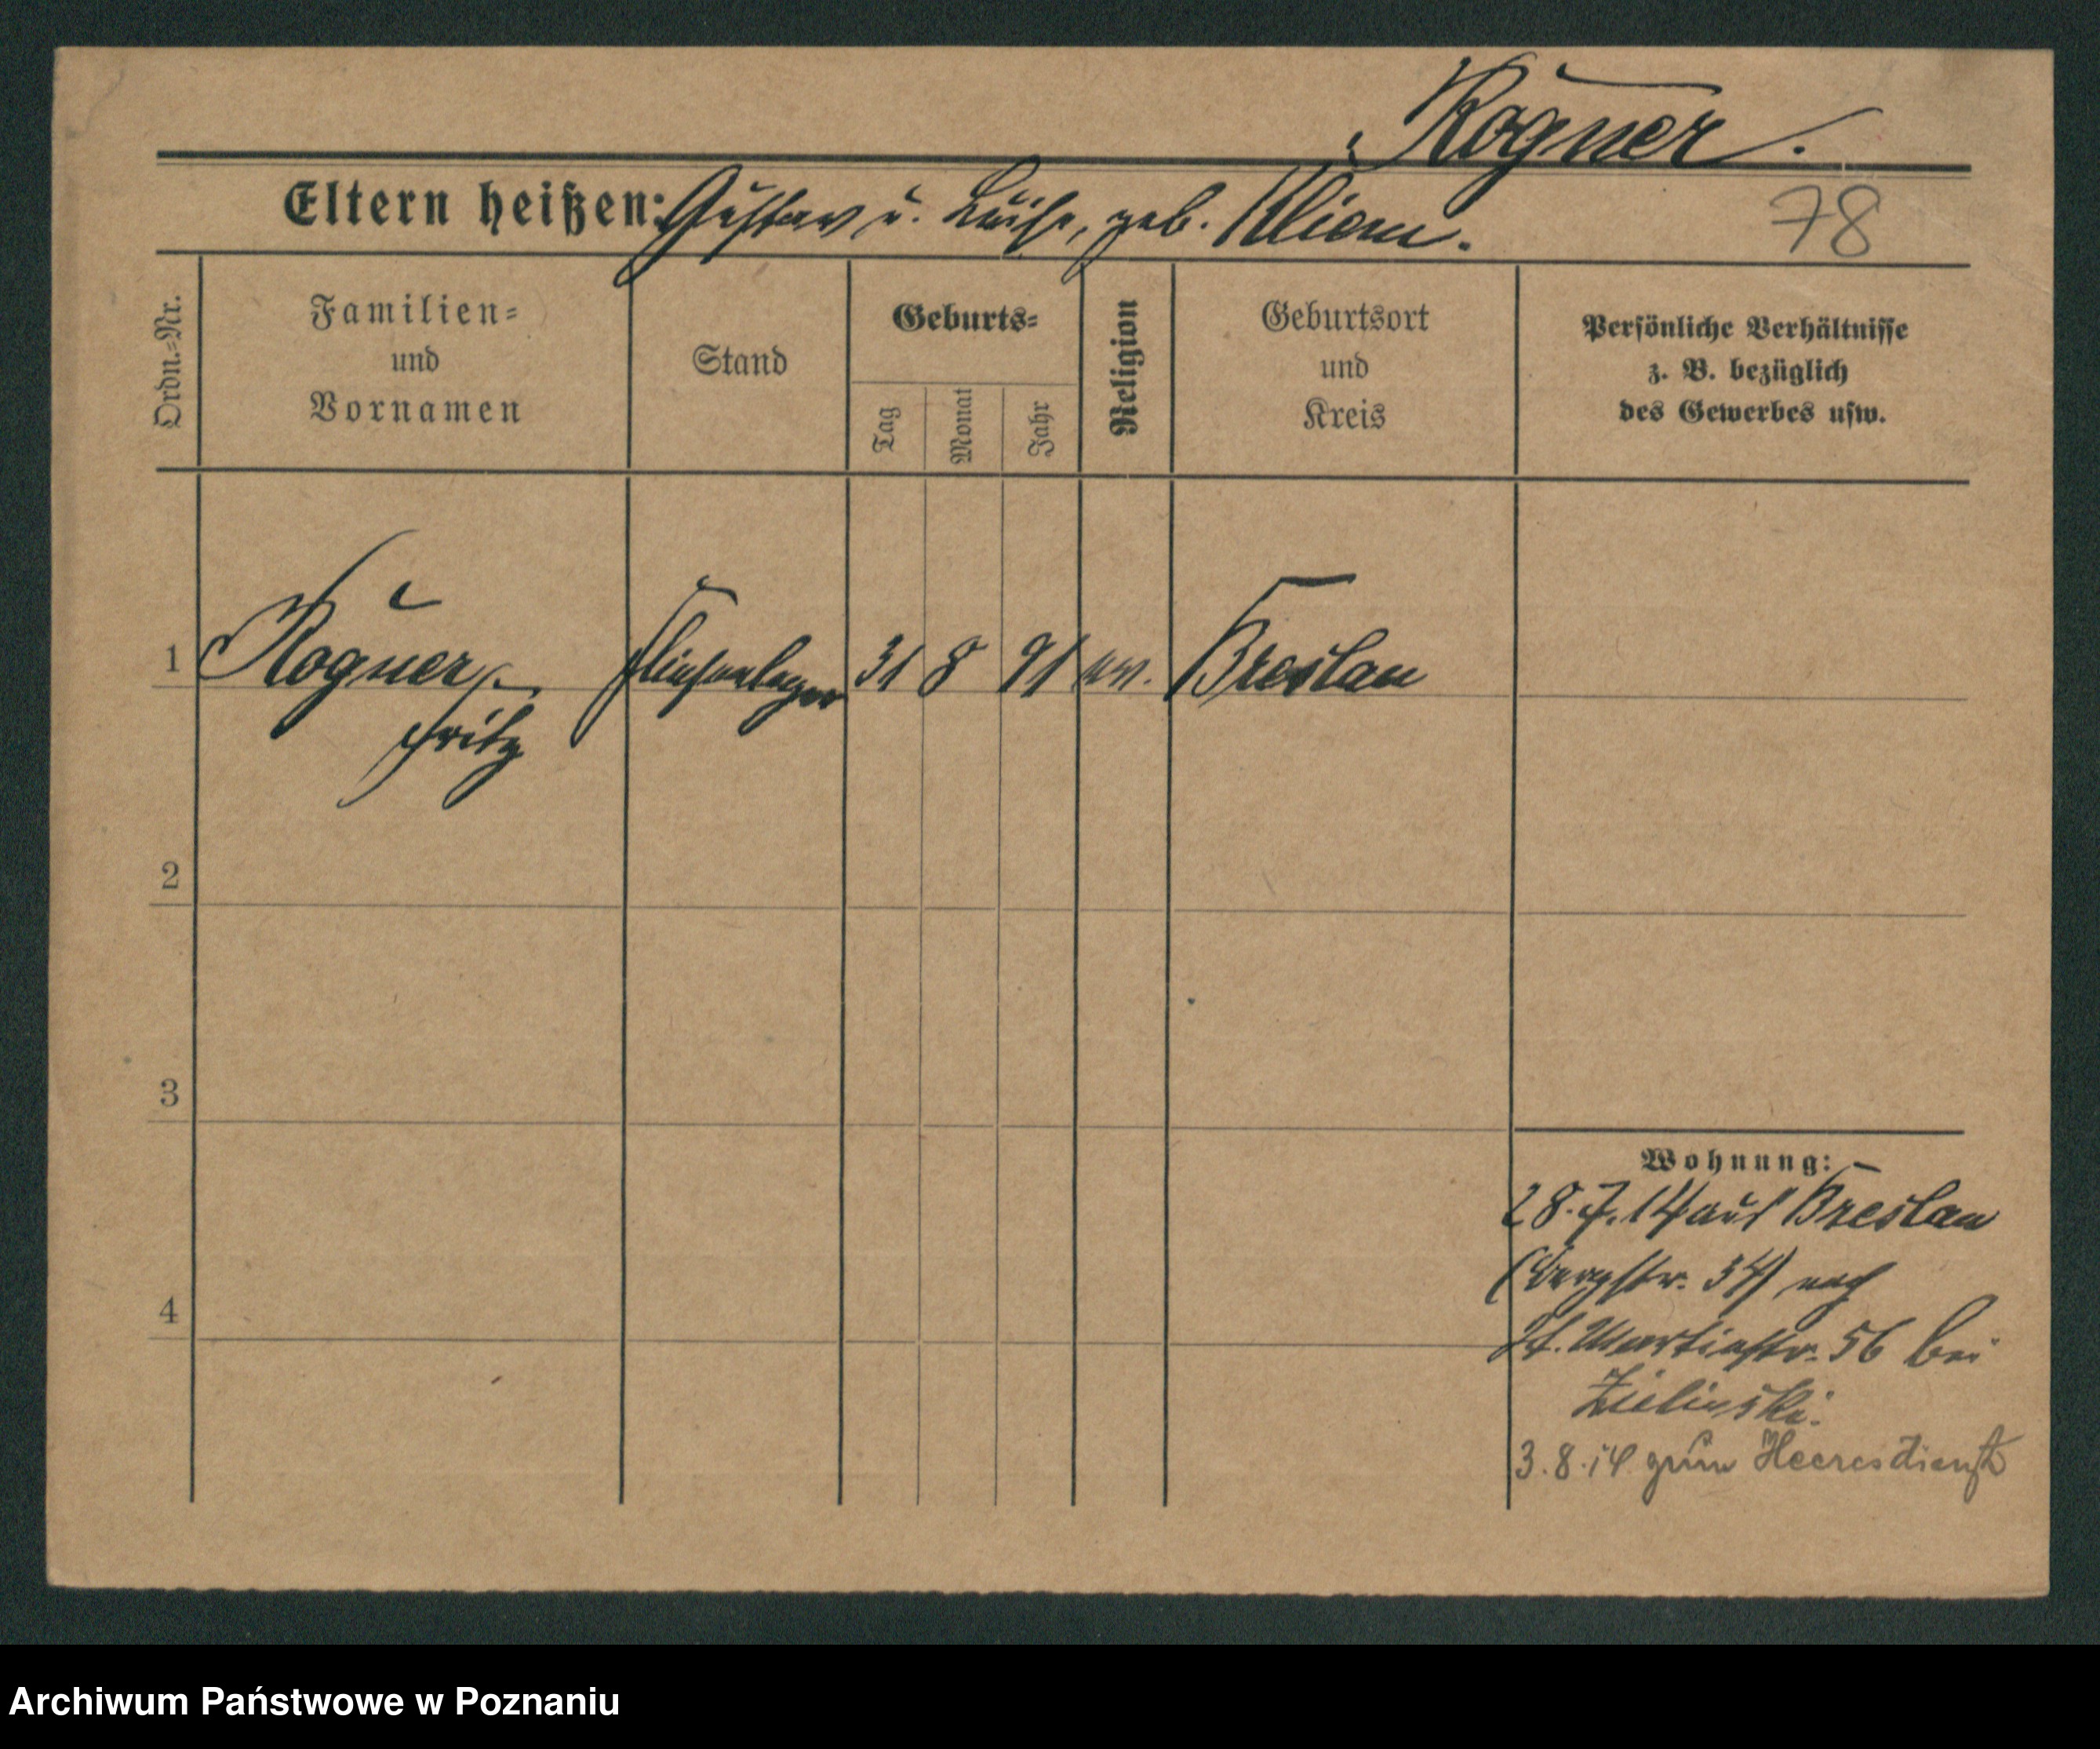 Rogner.
Eltern heißen: Gustav u. Luise, geb. Kliem.
78
Ordn.-Nr.
Familien-
und
Vornamen
Stand
Geburts-
Tag
Monat
Jahr
Religion
Geburtsort
und
Kreis
Persönliche Verhältnisse
z. B. bezüglich
des Gewerbes usw.
1 Rogner, Fliesenleger 31 8 91 ev. Breslau
Fritz
2
3
4
Wohnung:
28.7.14 aus Breslau
(Bergstr. 34) nach
St. Martinstr. 56 bei
Zielinski.
3.8.14 Heeresdienst
Archiwum Państwowe w Poznaniu